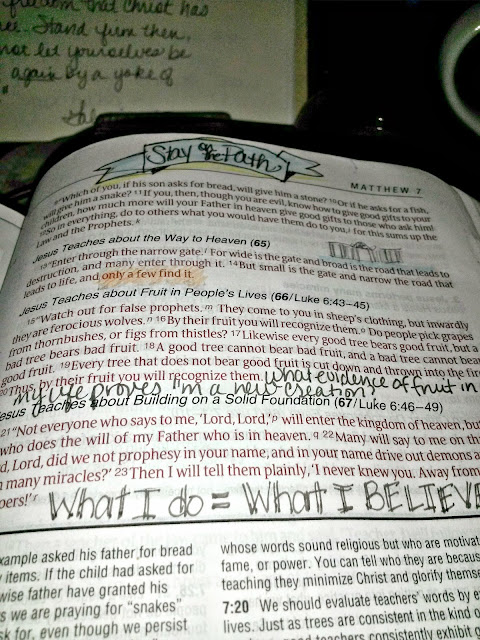 freedom that Christ has
Stand firm then,
not let yourselves be
again by a yoke of
Stay on the Path
MATTHEW 7
9"Which of you, if his son asks for bread, will give him a stone? 10Or if he asks for a fish,
will give him a snake? 11If you, then, though you are evil, know how to give good gifts to your
children, how much more will your Father in heaven give good gifts to those who ask him!
12So in everything, do to others what you would have them do to you, for this sums up the
Law and the Prophets.
Jesus Teaches about the Way to Heaven (65)
13"Enter through the narrow gate. For wide is the gate and broad is the road that leads to
destruction, and many enter through it. 14But small is the gate and narrow the road that
leads to life, and only a few find it.
Jesus Teaches about Fruit in People's Lives (66/Luke 6:43–45)
15"Watch out for false prophets. m They come to you in sheep's clothing, but inwardly
they are ferocious wolves. n 16By their fruit you will recognize them. o Do people pick grapes
from thornbushes, or figs from thistles? 17Likewise every good tree bears good fruit, but a
bad tree bears bad fruit. 18A good tree cannot bear bad fruit, and a bad tree cannot bear
good fruit. 19Every tree that does not bear good fruit is cut down and thrown into the fire.
20Thus, by their fruit you will recognize them. What evidence of fruit in
my life proves I'm a new creation?
Jesus Teaches about Building on a Solid Foundation (67/Luke 6:46–49)
21"Not everyone who says to me, 'Lord, Lord,' p will enter the kingdom of heaven, but
who does the will of my Father who is in heaven. q 22Many will say to me on th
d, Lord, did we not prophesy in your name, and in your name drive out demons a
many miracles?' 23Then I will tell them plainly, 'I never knew you. Away from
oers!' r
What I do = What I BELIEVE
xample asked his father for bread
items. If the child had asked for
wise father have granted his
s we are praying for "snakes"
sk for, even though we persist
whose words sound religious but who are motivat
fame, or power. You can tell who they are becaus
teaching they minimize Christ and glorify themse
7:20 We should evaluate teachers' words by e
lives. Just as trees are consistent in the kind o